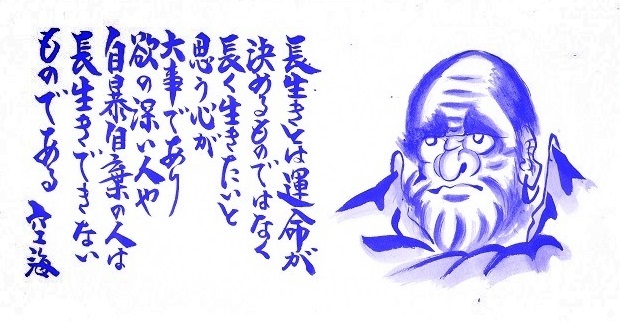 長生きとは運命が
決めるものではなく
長く生きたいと
思う心が
大事であり
欲の深い人や
自暴自棄の人は
長生きできない
ものである
空海